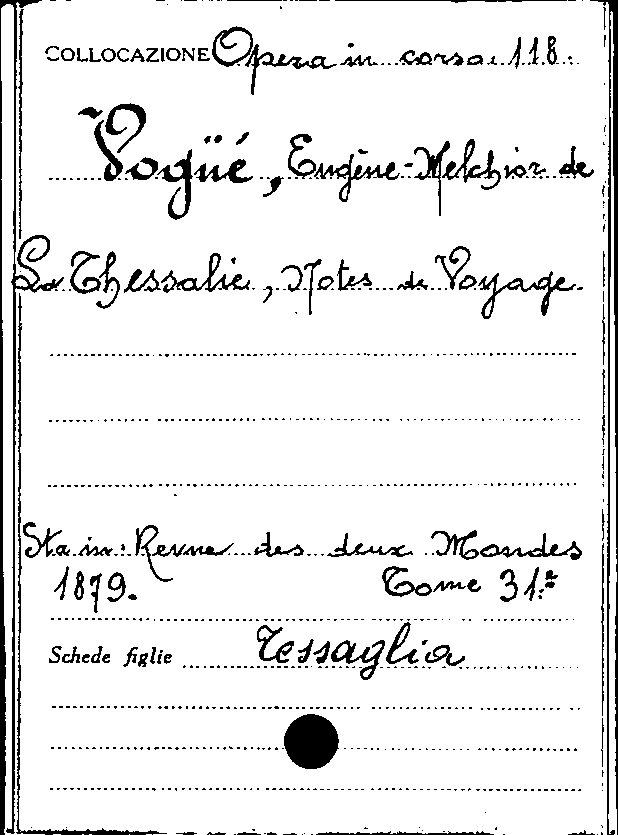 COLLOCAZIONE Opera in corso. 118.
Vogüé, Eugène-Melchior de
La Thessalie, Notes de Voyage.
Sta in: Revue des deux Mondes
1879. Tome 31.e
Schede figlie Tessaglia